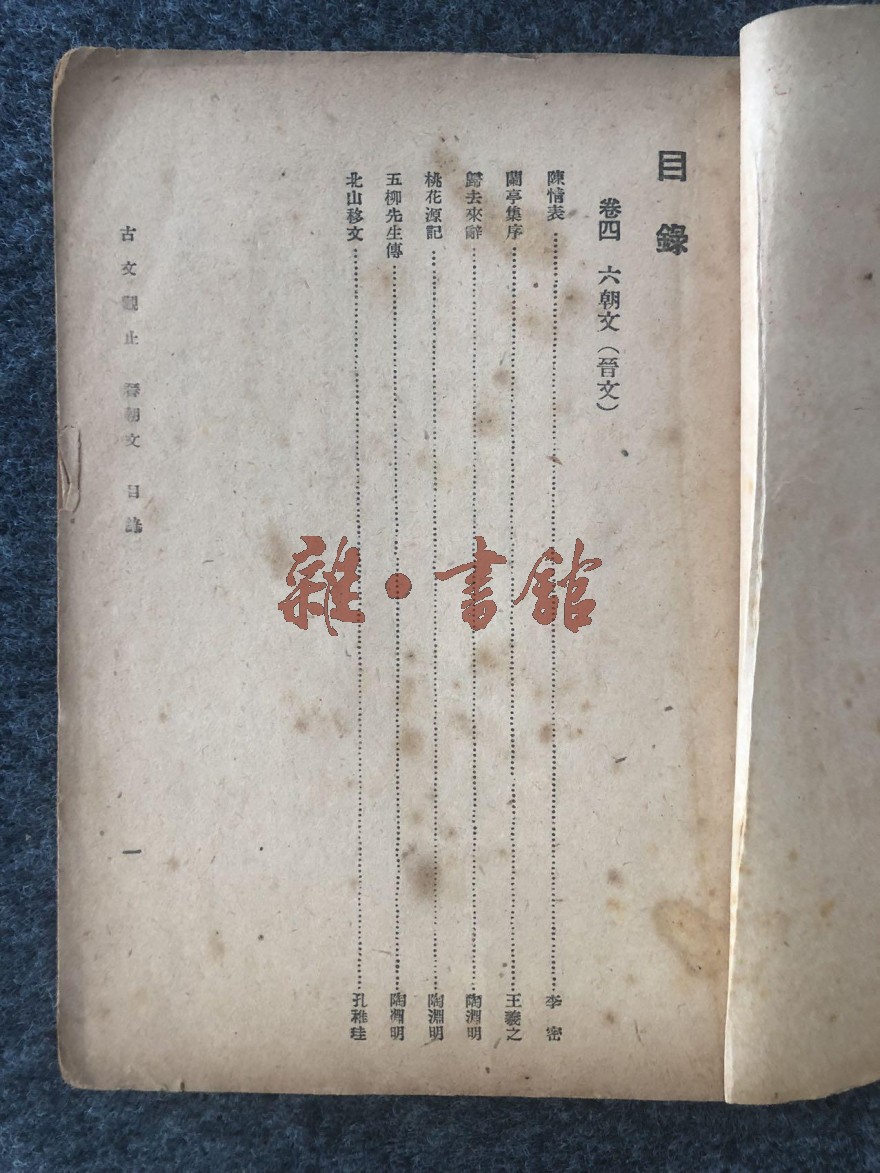 目錄
卷四　六朝文（晉文）
陳情表……李　密
蘭亭集序……王羲之
歸去來辭……陶淵明
桃花源記……陶淵明
五柳先生傳……陶淵明
北山移文……孔稚珪
古文觀止　朝文　目錄
一
雜·書館